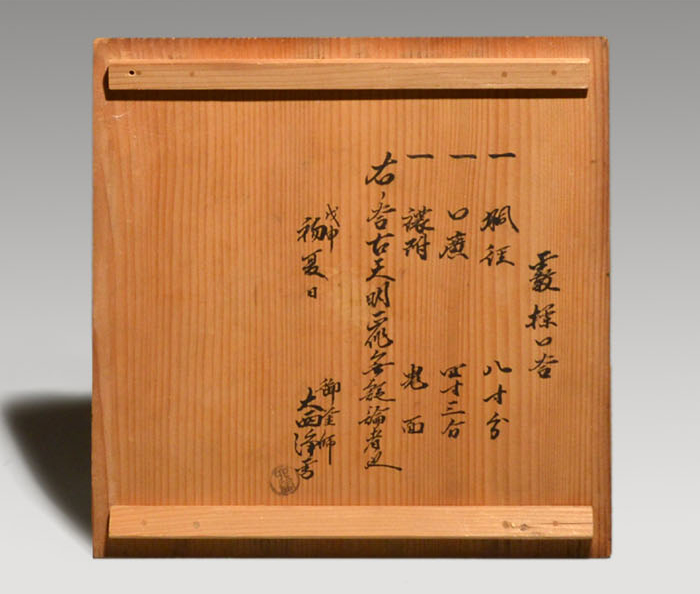 霰操口釜
一 胴径 八寸分
一 口廣 四寸三分
一 鐶附 鬼面
右ノ釜古天明正作無疑論者也
戊申
初夏日
御釜師
大西浄雪